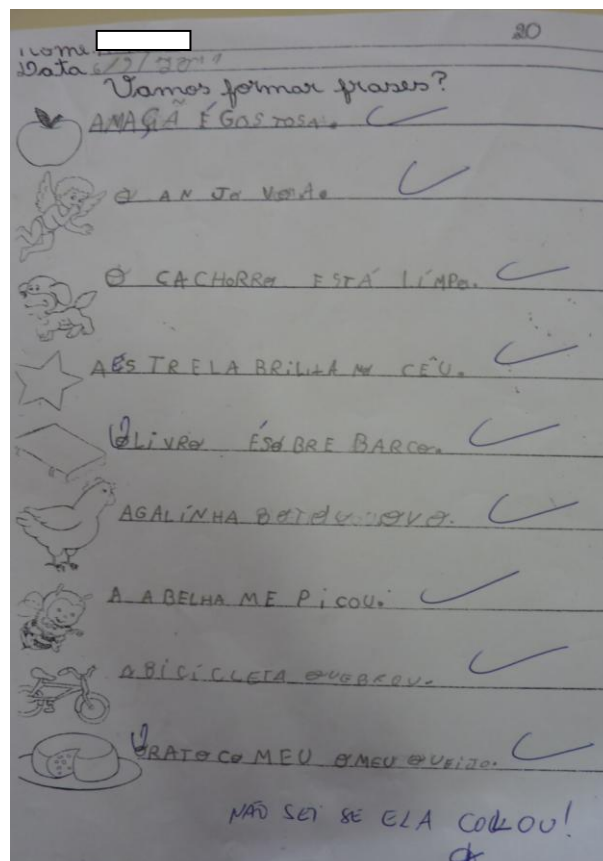 20
Nome
Data 6/9/2011
Vamos formar frases?
AMAÇÃ É GOSTOSA.
O ANJO VOA.
O CACHORRO ESTÁ LÍMPO.
AESTRELA BRILHA NO CÊU.
OLIVRO ÉSOBRE BARCO.
AGALINHA BOTOU OVO.
A ABELHA ME PICOU.
ABICICLETA QUEBROU.
ORATOCOMEU OMEU QUEIJO.
NÃO SEI SE ELA COLOU!